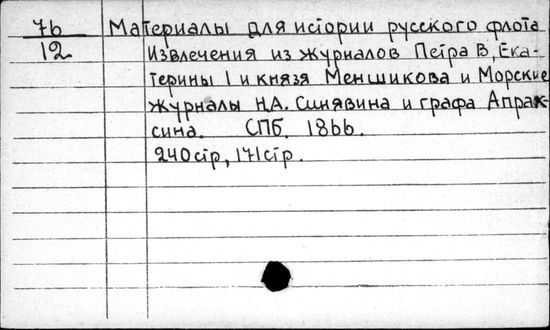 7б Материалы для истории русского флота
12 Извлечения из журналов Петра В, Ека-
терины I и князя Меншикова и Морские
журналы Н.А. Синявина и графа Апрак-
сина. СПб. 1866.
240 стр, 171 стр.